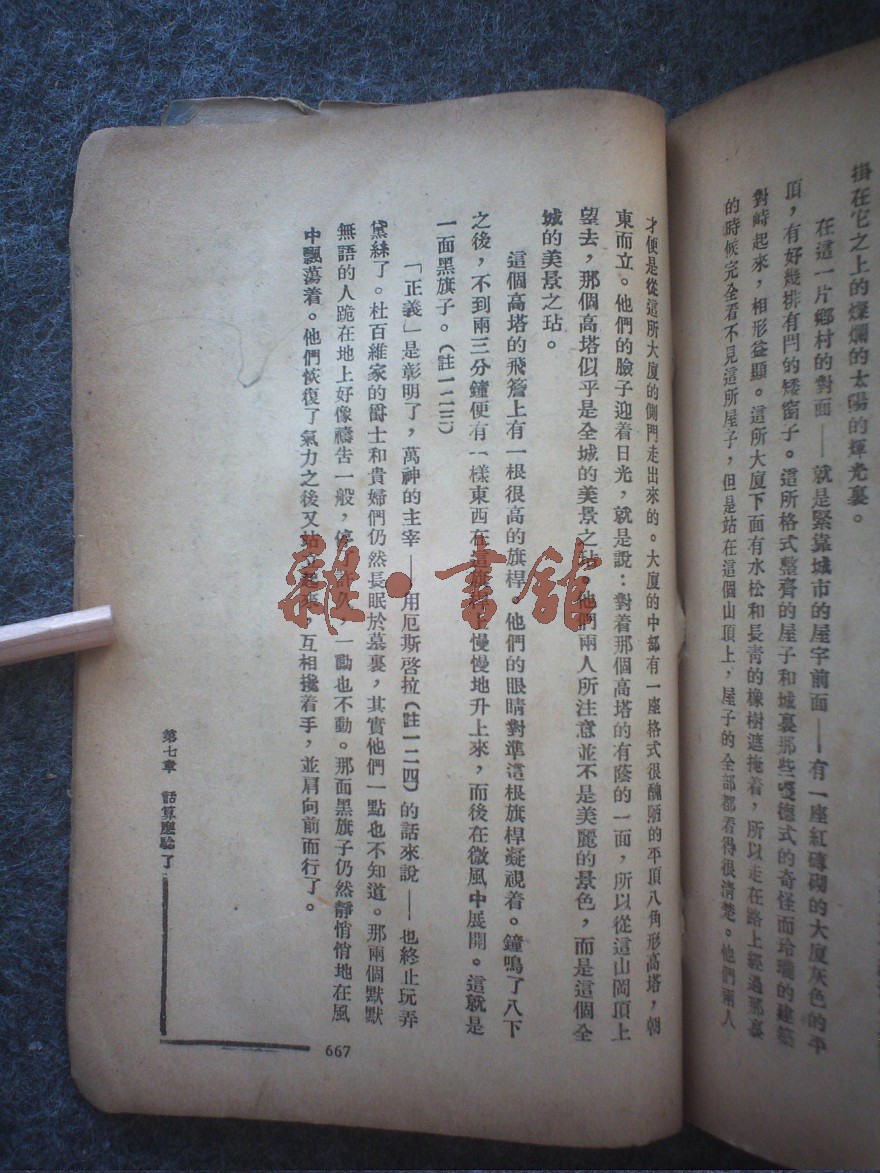 掛在它之上的燦爛的太陽的輝光裏。
在這一片鄉村的對面——就是緊靠城市的屋宇前面——有一座紅磚砌的大厦灰色的平
頂，有好幾排有閂的矮窗子。這所格式整齊的屋子和城裏那些嘎德式的奇怪而玲瓏的建築
對峙起來，相形益顯。這所大厦下面有水松和長靑的橡樹遮掩着，所以走在路上經過那裏
的時候完全看不見這所屋子，但是站在這個山頂上，屋子的全部都看得很清楚。他們兩人
才便是從這所大厦的側門走出來的。大厦的中部有一座格式很醜陋的平頂八角形高塔，朝
東而立。他們的臉子迎着日光，就是說：對着那個高塔的有蔭的一面，所以從這山岡頂上
望去，那個高塔似乎是全城的美景之玷。他們兩人所注意並不是美麗的景色，而是這個全
城的美景之玷。
這個高塔的飛簷上有一根很高的旗桿。他們的眼睛對準這根旗桿凝視着。鐘鳴了八下
之後，不到兩三分鐘便有一樣東西在這旗桿上慢慢地升上來，而後在微風中展開。這就是
一面黑旗子。（註一二三）
「正義」是彰明了，萬神的主宰——用厄斯啓拉（註一二四）的話來說——也終止玩弄
黛絲了。杜百維家的爵士和貴婦們仍然長眠於墓裏，其實他們一點也不知道。那兩個默默
無語的人跪在地上好像禱告一般，停了許久，一動也不動。那面黑旗子仍然靜悄悄地在風
中飄蕩着。他們恢復了氣力之後又站立起來，互相攙着手，並肩向前而行了。
第七章 話算應驗了
667
雜·書舘